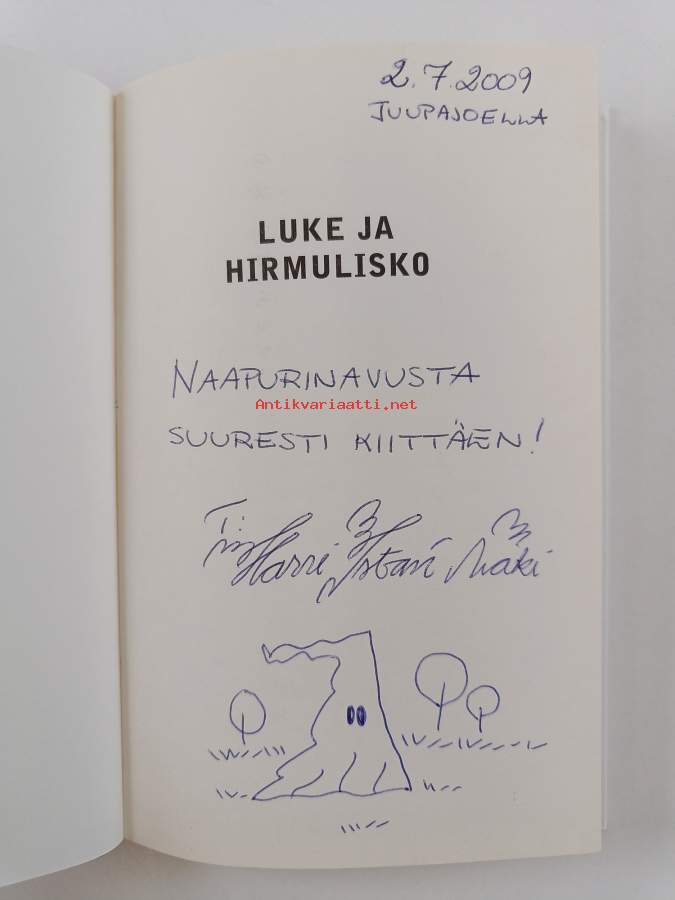 2.7.2009
JUUPAJOELLA
LUKE JA
HIRMULISKO
NAAPURINAVUSTA
Antikvariaatti.net
SUURESTI KIITTÄEN!
T:
Harri István Mäki